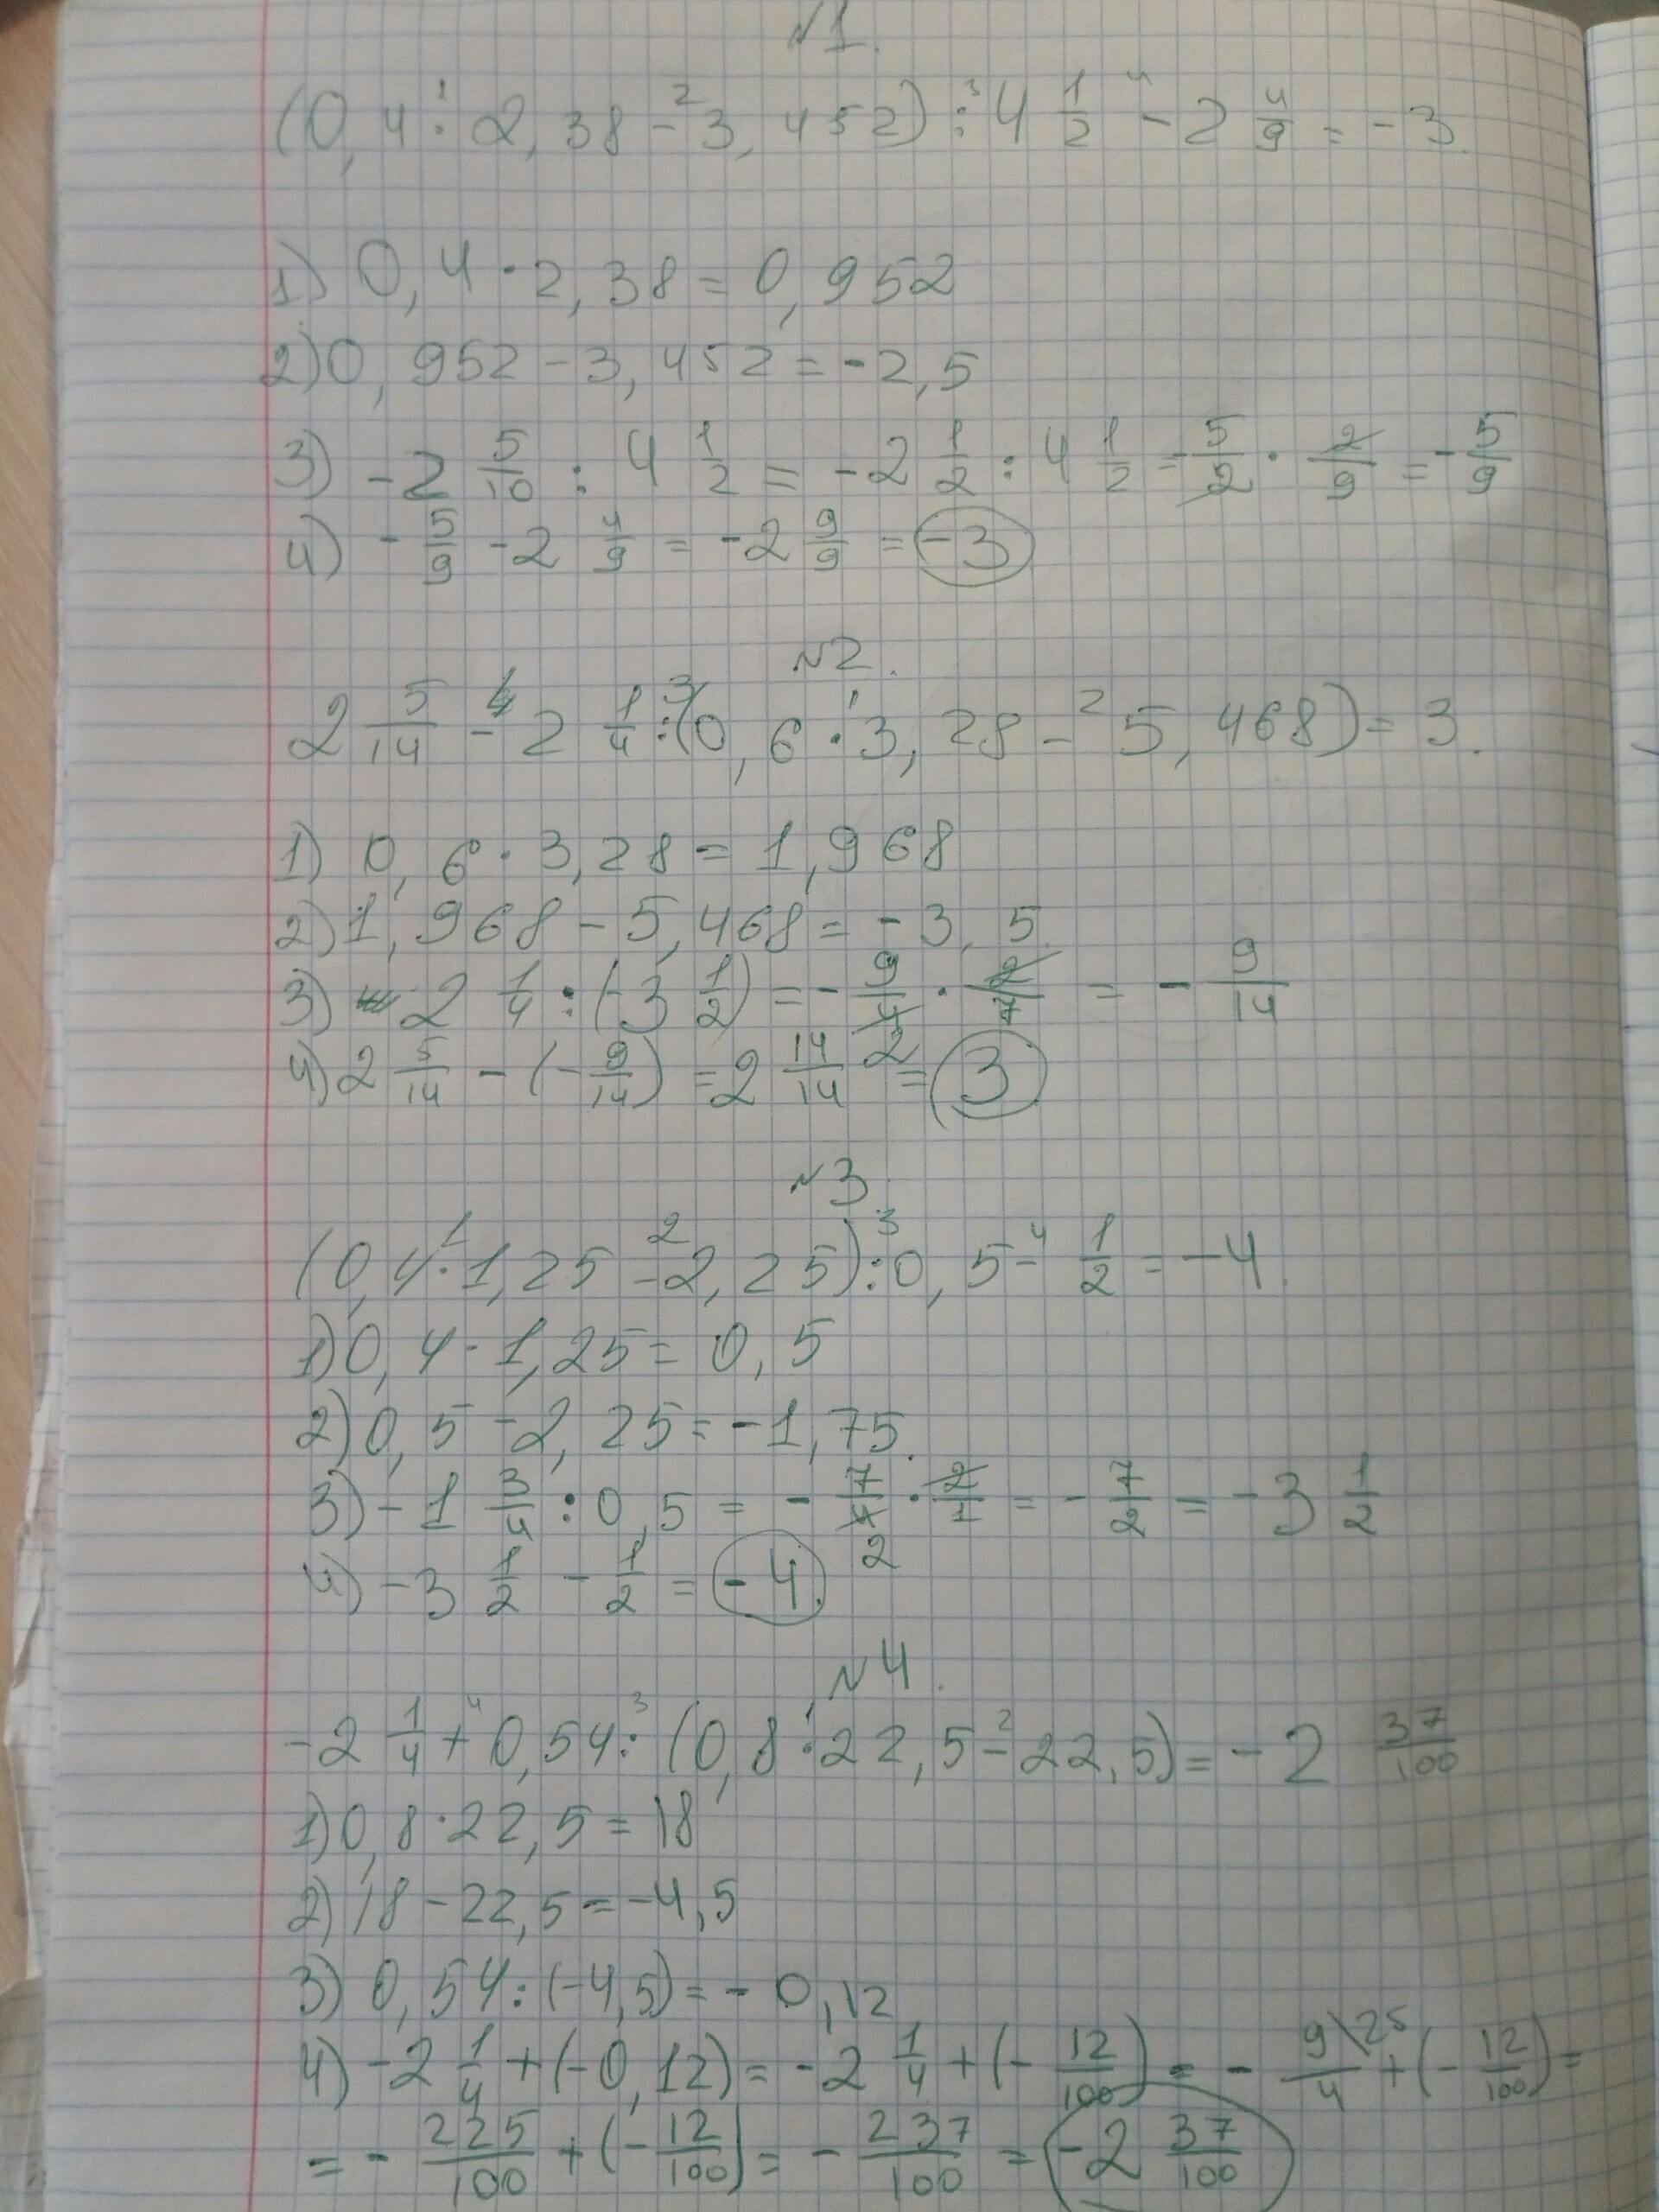 №1.
(0,4 · 2,38 - 3,452) : 4 1/2 - 2 4/9 = -3.
1) 0,4 · 2,38 = 0,952
2) 0,952 - 3,452 = -2,5
3) -2 5/10 : 4 1/2 = -2 1/2 : 4 1/2 = -5/2 · 2/9 = -5/9
4) -5/9 - 2 4/9 = -2 9/9 = -3
№2.
2 5/14 - 2 1/4 : (0,6 · 3,28 - 5,468) = 3.
1) 0,6 · 3,28 = 1,968
2) 1,968 - 5,468 = -3,5.
3) 2 1/4 : (-3 1/2) = -9/4 · 2/7 = -9/14
4) 2 5/14 - (-9/14) = 2 14/14 = 3
№3.
(0,4 · 1,25 - 2,25) : 0,5 - 1/2 = -4.
1) 0,4 · 1,25 = 0,5
2) 0,5 - 2,25 = -1,75.
3) -1 3/4 : 0,5 = -7/4 · 2/1 = -7/2 = -3 1/2
4) -3 1/2 - 1/2 = -4.
№4.
-2 1/4 + 0,54 : (0,8 · 22,5 - 22,5) = -2 37/100
1) 0,8 · 22,5 = 18
2) 18 - 22,5 = -4,5
3) 0,54 : (-4,5) = -0,12
4) -2 1/4 + (-0,12) = -2 1/4 + (-12/100) = -9\25/4 + (-12/100) =
= -225/100 + (-12/100) = -237/100 = -2 37/100